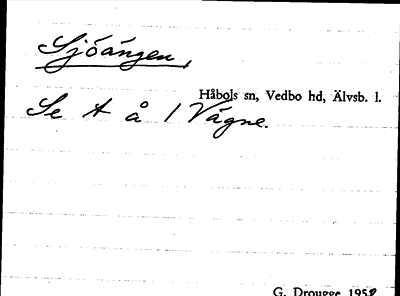 Sjöängen,
Håbols sn, Vedbo hd, Älvsb. l.
Se A å 1 Vägne.
G. Drougge 1958